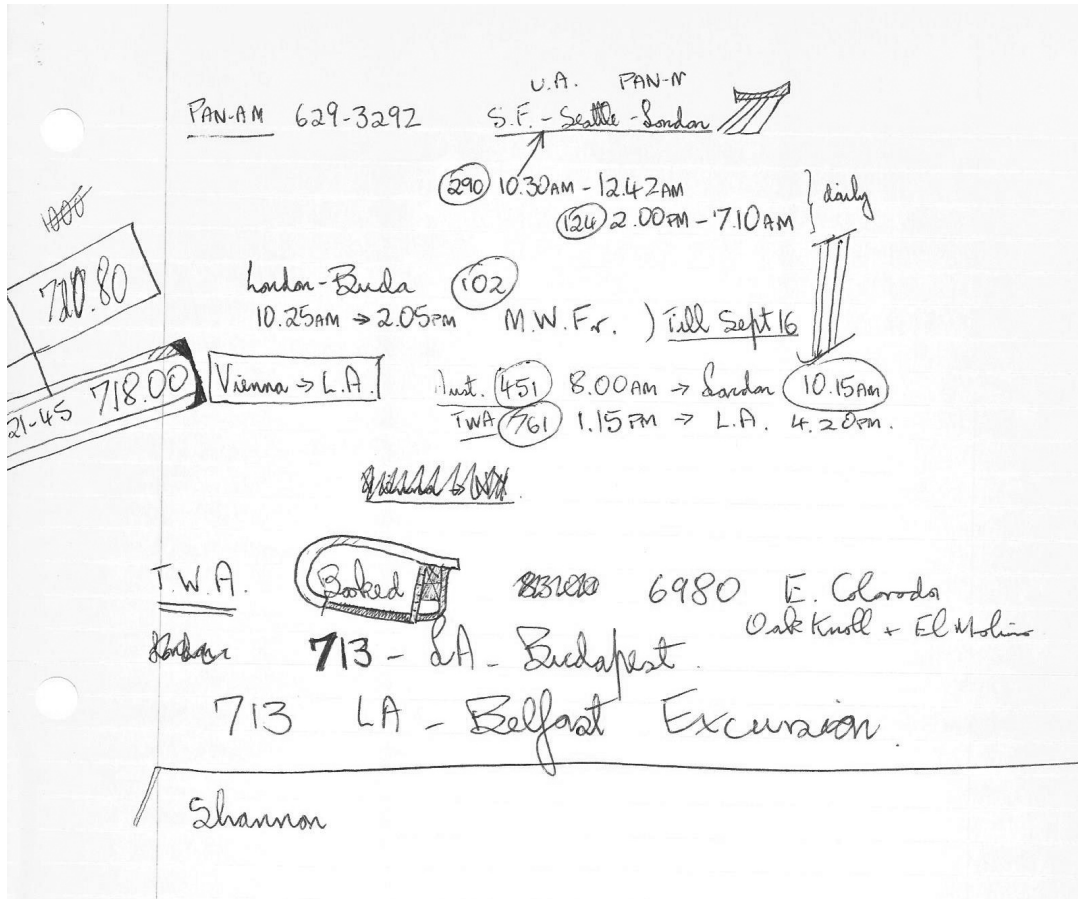 U.A. PAN-M
PAN-AM 629-3292 S.F. - Seattle - London
290 10.30AM - 12.42AM
124 2.00PM - 7.10AM } daily
1000
720.80
London - Buda 102
10.25AM → 2.05PM M.W.Fr. ) Till Sept 16
21-45 718.00
Vienna → L.A. Aust. 451 8.00AM → London 10.15AM
TWA 761 1.15PM → L.A. 4.20PM.
T.W.A. Booked 6980 E. Colorado
Oak Knoll + El Molino
London 713 - LA - Budapest.
713 LA - Belfast Excursion.
Shannon